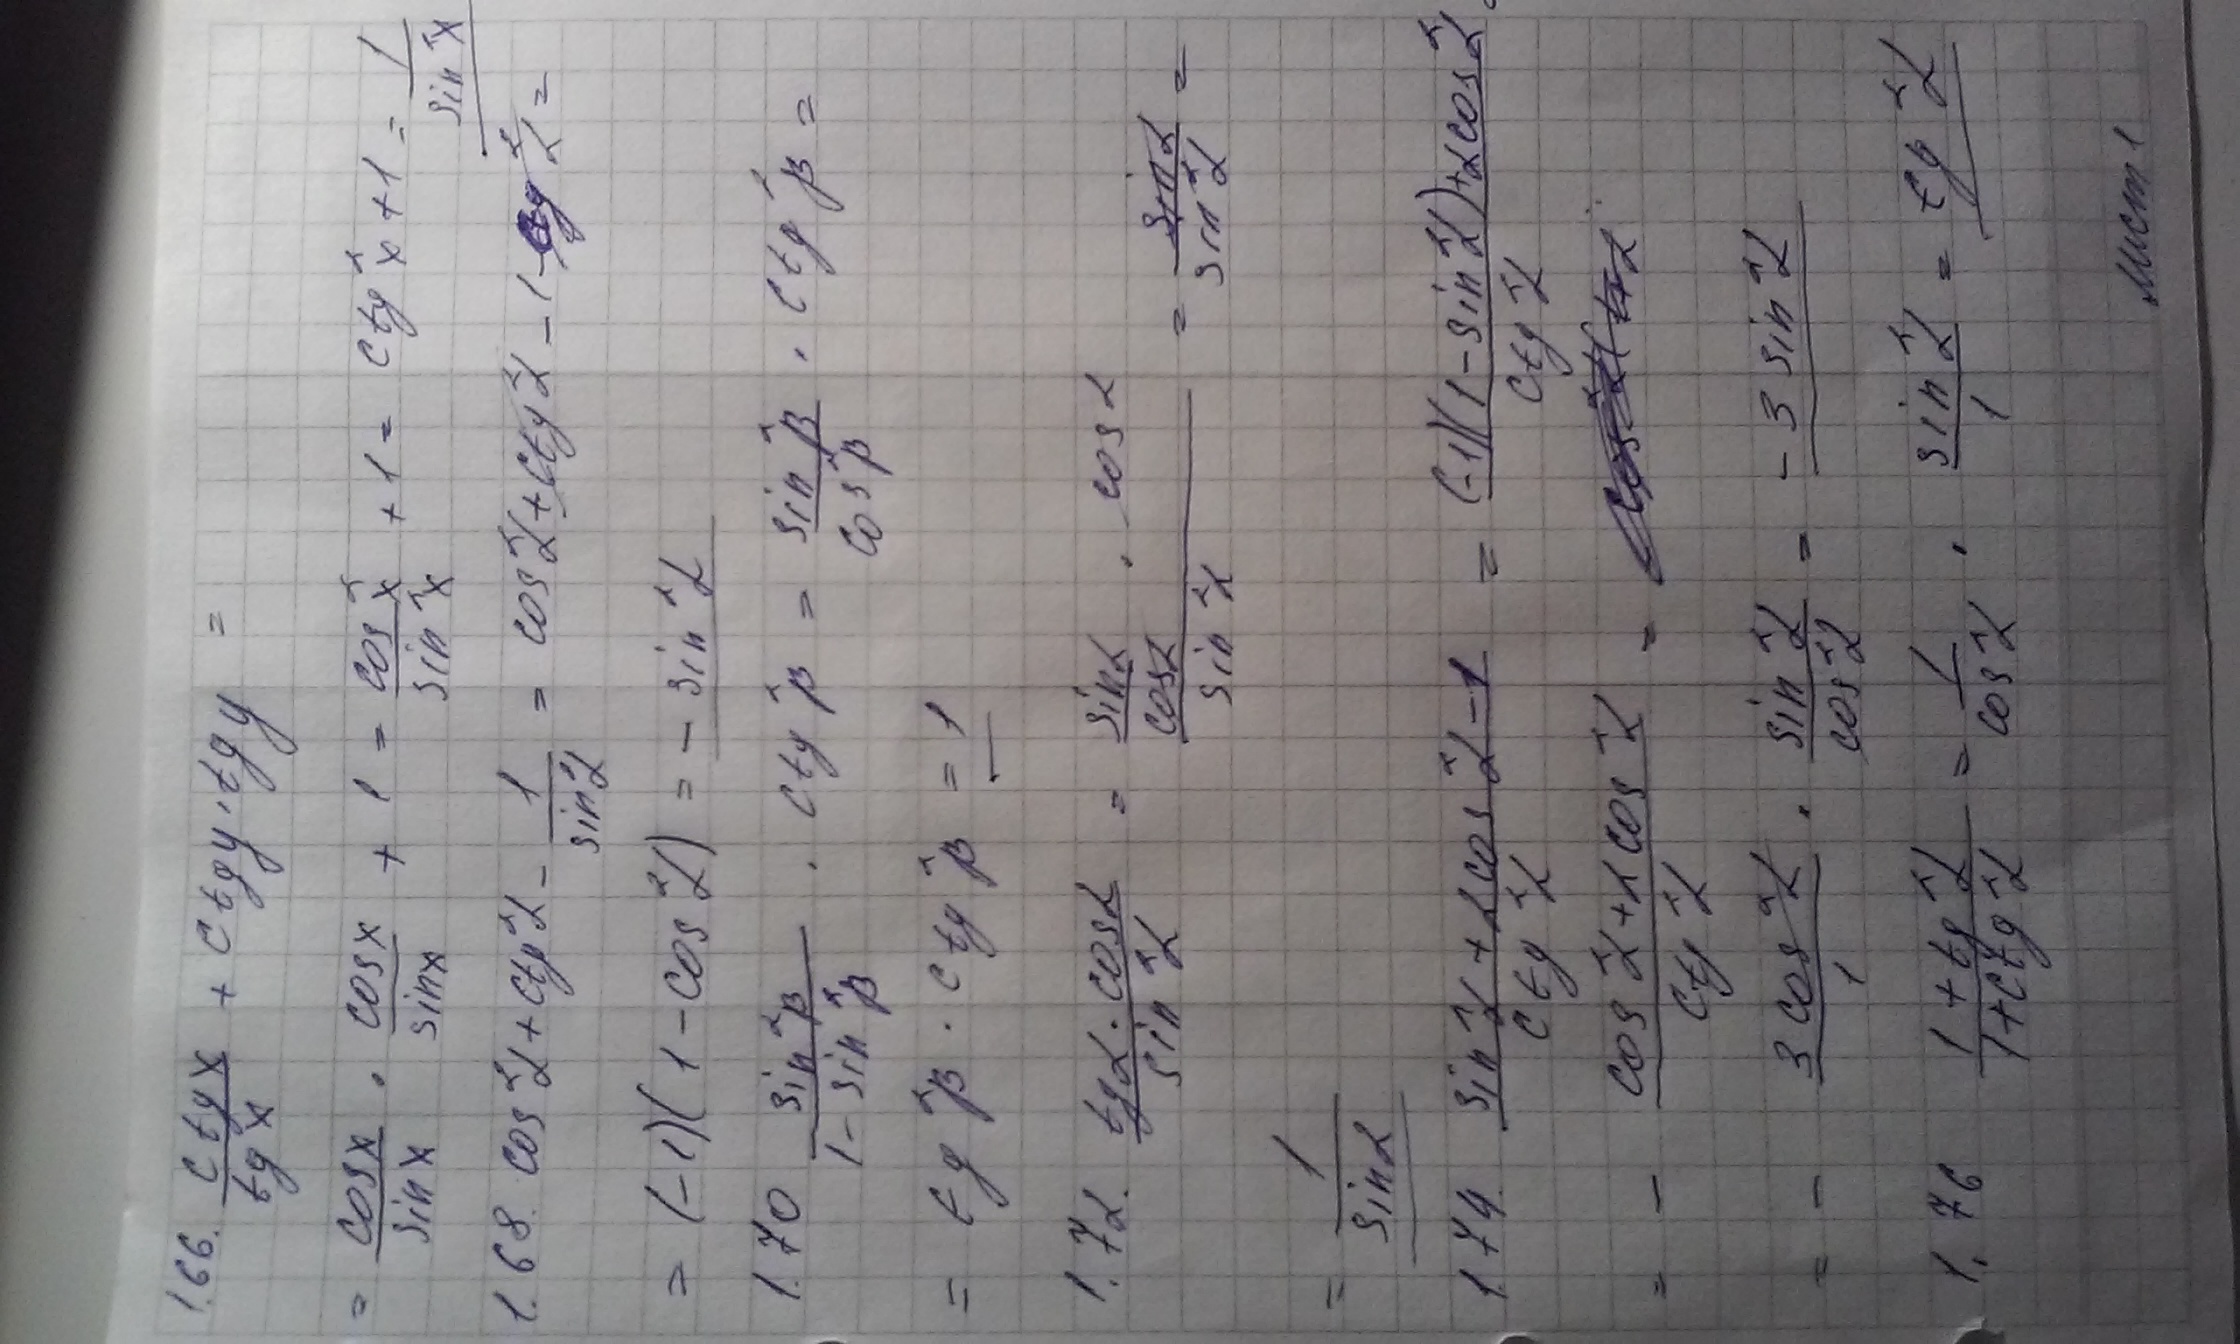 1.66. ctgx/tgx + ctgy·tgy =
= cosx/sinx · cosx/sinx + 1 = cos²x/sin²x + 1 = ctg²x + 1 = 1/sin²x
1.68. cos²α + ctg²α - 1/sin²α = cos²α + ctg²α - 1 - ctg²α =
= (-1)(1 - cos²α) = - sin²α
1.70 sin²β/1 - sin²β · ctg²β = sin²β/cos²β · ctg²β =
= tg²β · ctg²β = 1
1.72. tgα·cosα/sin²α = sinα/cosα · cosα/sin²α = sinα/sin²α =
= 1/sinα
1.74. sin²α + 2cos²α - 1/ctg²α = (-1)(1 - sin²α) + 2cos²α/ctg²α
= - cos²α + 2cos²α/ctg²α =
= - 3cos²α/1 · sin²α/cos²α = - 3 sin²α
1.76 1 + tg²α/1 + ctg²α = 1/cos²α · sin²α/1 = tg²α
лист 1